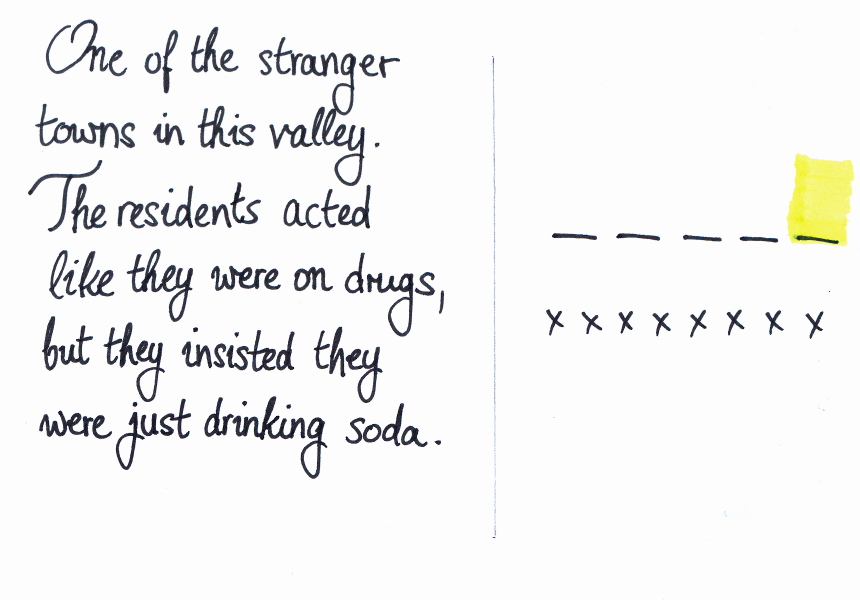 One of the stranger
towns in this valley.
The residents acted
like they were on drugs,
but they insisted they
were just drinking soda.
_ _ _ _ _
x x x x x x x x